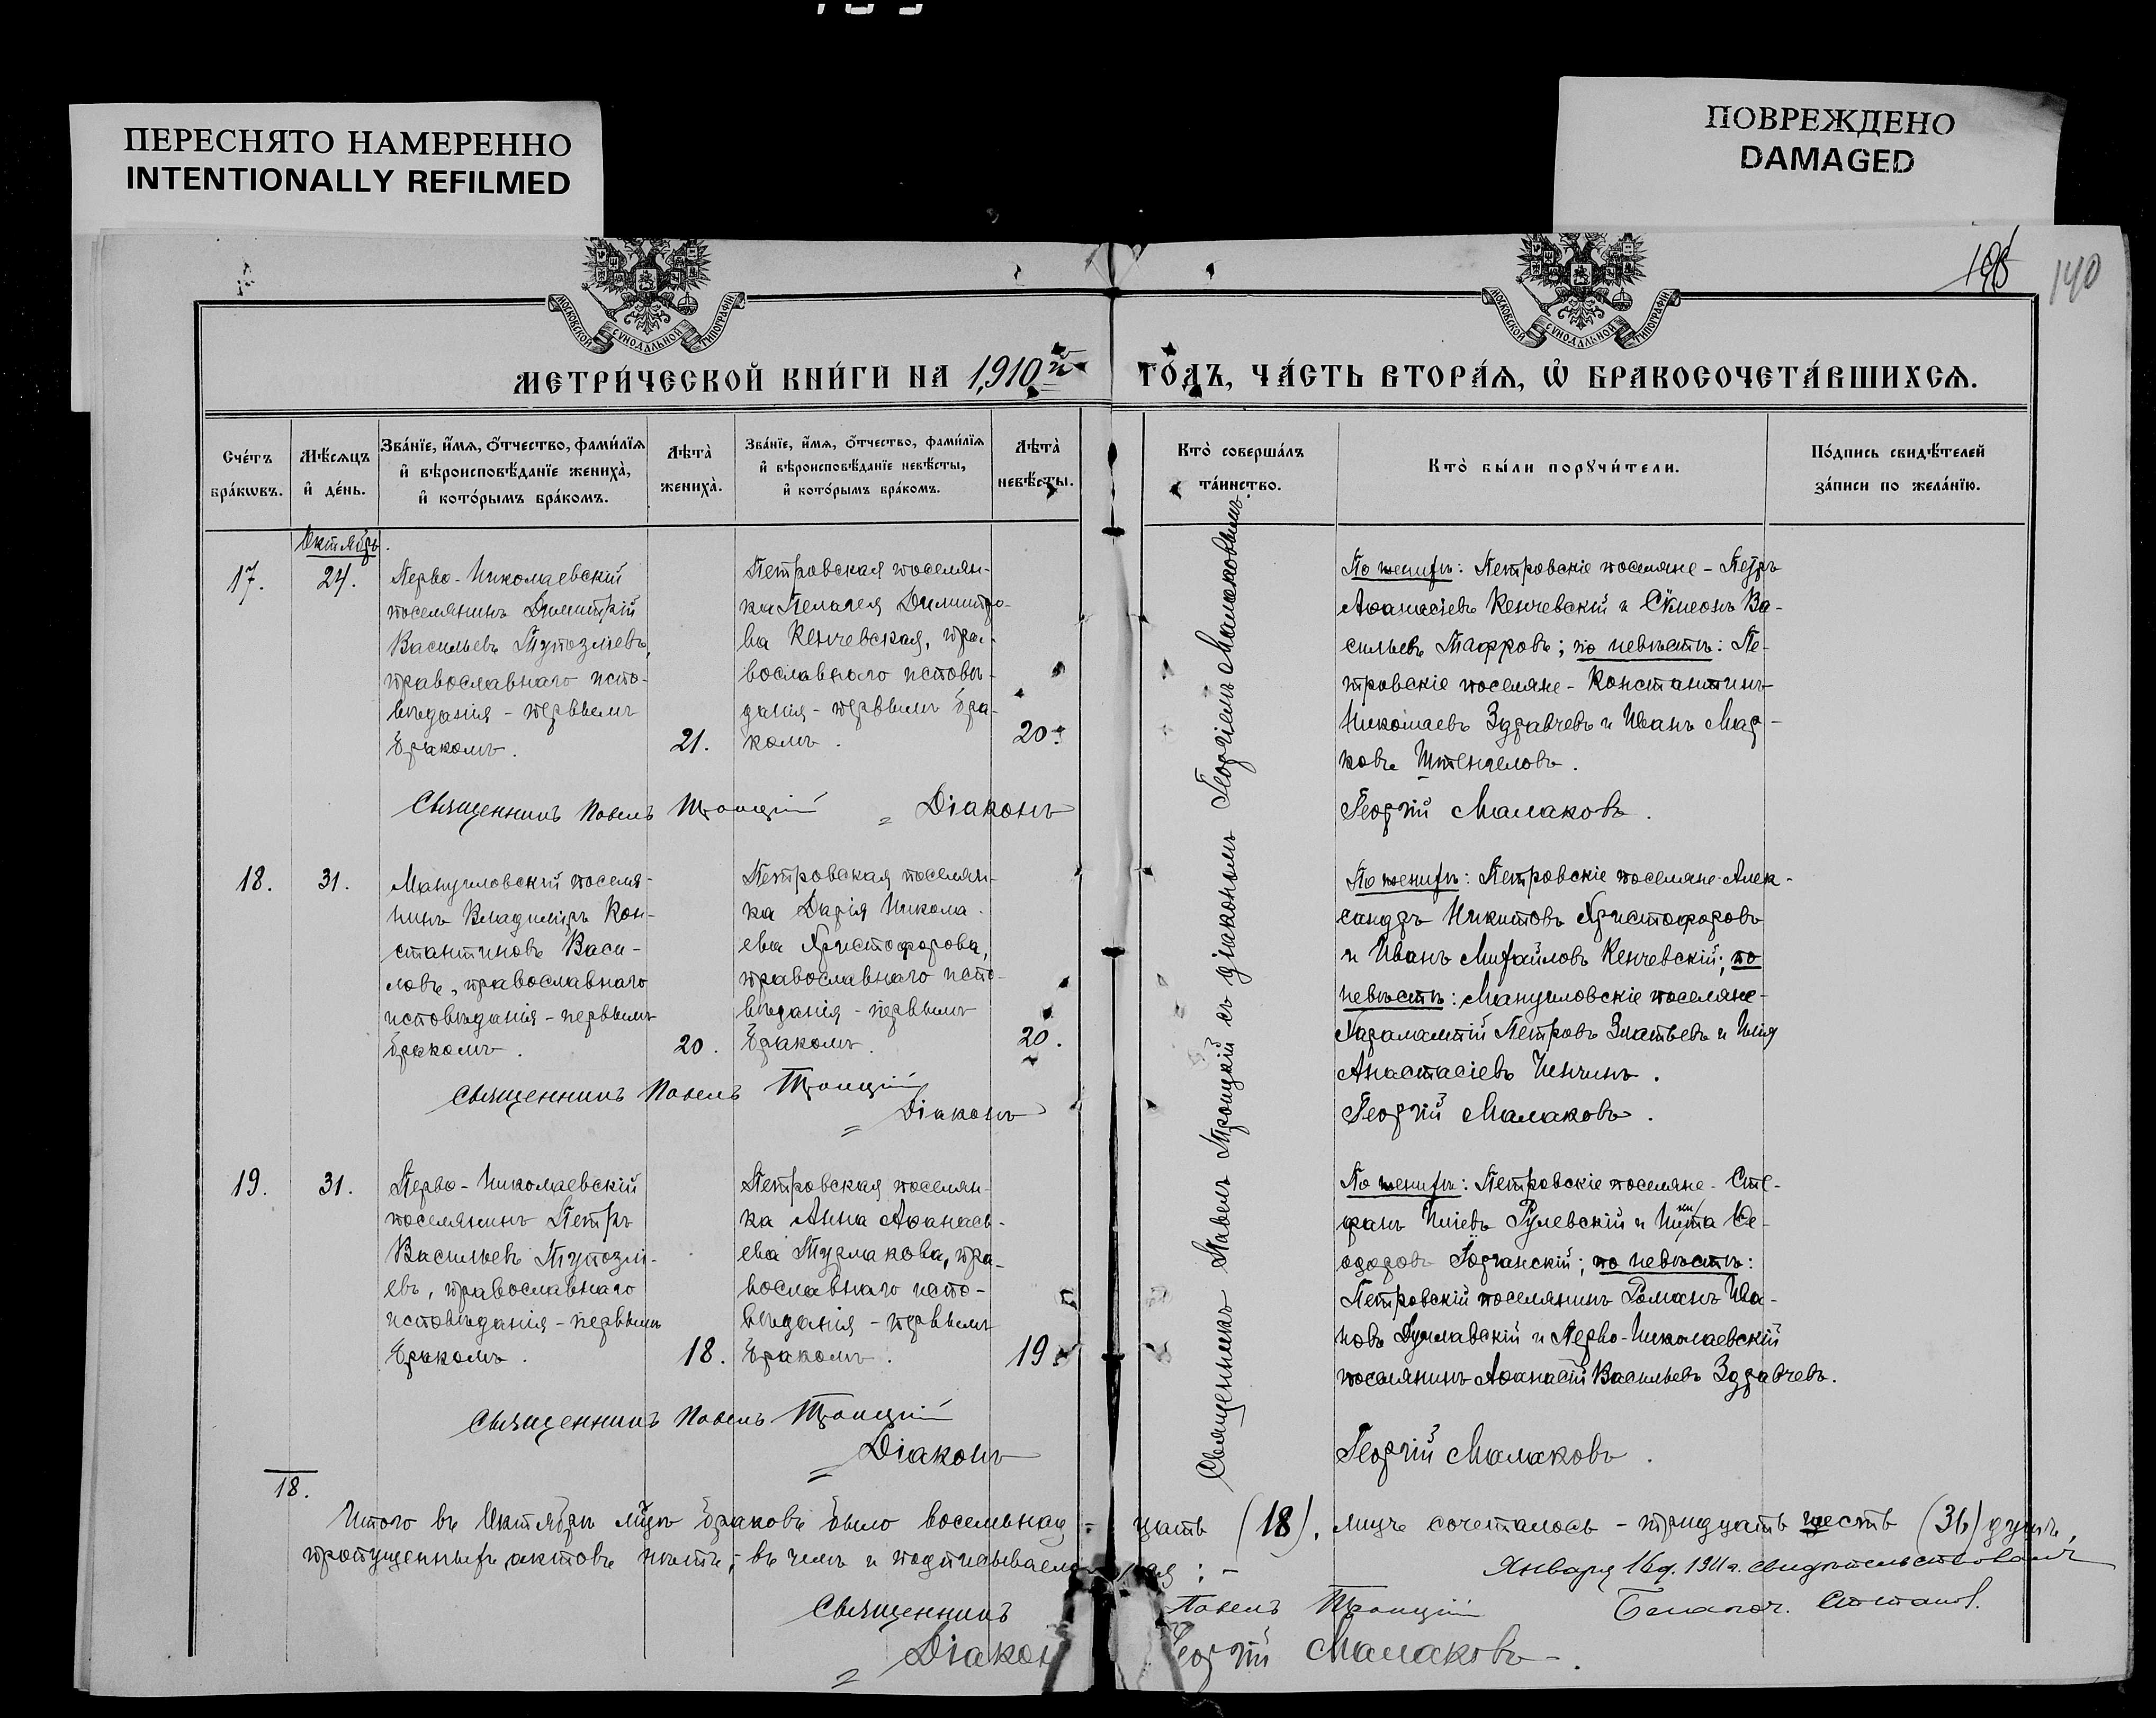 ПЕРЕСНЯТО НАМЕРЕННО
INTENTIONALLY REFILMED
ПОВРЕЖДЕНО
DAMAGED
195
140
МОСКОВСКОЙ СѴНОДАЛЬНОЙ ТИПОГРАФІИ
МОСКОВСКОЙ СѴНОДАЛЬНОЙ ТИПОГРАФІИ
МЕТРИ́ЧЕСКОЙ КНИ́ГИ НА 1910й ГО́ДЪ, ЧА́СТЬ ВТОРА́Ѧ, Ѽ БРАКОСОЧЕТА́ВШИХСѦ.
Сче́тъ
бра́кѡвъ.
Мѣ́сѧцъ
и҆ де́нь.
Зва́нїе, и҆́мѧ, ѻ҆́тчество, фами́лїѧ
и҆ вѣроисповѣ́данїе жениха̀,
и҆ кото́рымъ бра́комъ.
Лѣта̀
жениха̀.
Зва́нїе, и҆́мѧ, ѻ҆́тчество, фами́лїѧ
и҆ вѣроисповѣ́данїе невѣ́сты,
и҆ кото́рымъ бра́комъ.
Лѣта̀
невѣ́сты.
Кто̀ соверша́лъ
та́инство.
Кто̀ бы́ли порꙋчи́тели.
По́дпись свидѣ́телей
за́писи по жела́нїю.
Октябрь.
17.
24.
Перво-Николаевскій
поселянинъ Димитрій
Васильевъ Тупозліевъ,
православнаго испо-
вѣданія - первымъ
бракомъ.
21.
Петровская поселян-
ка Пелагея Димитро-
ва Кенчевская, пра-
вославнаго исповѣ-
данія - первымъ бра-
комъ.
20.
По женихѣ: Петровскіе поселяне - Петръ
Аѳанасіевъ Кенчевскій и Сѵмеонъ Ва-
сильевъ Тафровъ; по невѣстѣ: Пе-
тровскіе поселяне - Константинъ
Николаевъ Здравчевъ и Иванъ Мар-
ковъ Штенгеловъ.
Священникъ Павелъ Троицкій
„ Діаконъ Георгій Малаковъ.
18.
31.
Мануиловскій поселя-
нинъ Владиміръ Кон-
стантиновъ Васи-
ловъ, православнаго
исповѣданія - первымъ
бракомъ.
20.
Петровская поселян-
ка Дарія Никола-
ева Христофорова,
православнаго испо-
вѣданія - первымъ
бракомъ.
20.
По женихѣ: Петровскіе поселяне - Алек-
сандръ Никитовъ Христофоровъ
и Иванъ Михайловъ Кенчевскій; по
невѣстѣ: Мануиловскіе поселяне -
Харалампій Петровъ Златьевъ и Илія
Анастасіевъ Ченчинъ.
Священникъ Павелъ Троицкій
„ Діаконъ Георгій Малаковъ.
19.
31.
Перво-Николаевскій
поселянинъ Петръ
Васильевъ Тупозлі-
евъ, православнаго
исповѣданія - первымъ
бракомъ.
18.
Петровская поселян-
ка Анна Аѳанась-
ева Турлакова, пра-
вославнаго испо-
вѣданія - первымъ
бракомъ.
19.
По женихѣ: Петровскіе поселяне - Сте-
фанъ Иліевъ Гулевскій и Никита Ѳе-
одоровъ Горганскій; по невѣстѣ:
Петровскій поселянинъ Романъ Ива-
новъ Дуклавскій и Перво-Николаевскій
поселянинъ Аѳанасій Васильевъ Здравчевъ.
Священникъ Павелъ Троицкій
„ Діаконъ Георгій Малаковъ.
Священникъ Павелъ Троицкій съ діакономъ Георгіемъ Малаковымъ.
18.
Итого въ Октябрѣ мѣцѣ браковъ было восемьнад-цать (18), лицъ сочеталось - тридцать шесть (36) душъ,
пропущенныхъ актовъ нѣтъ, - въ чемъ и подписываемся: -
Января 16 д. 1911 г. свидѣтельствовалъ
Священникъ Павелъ Троицкій
Благоч.
„ Діаконъ Георгій Малаковъ.